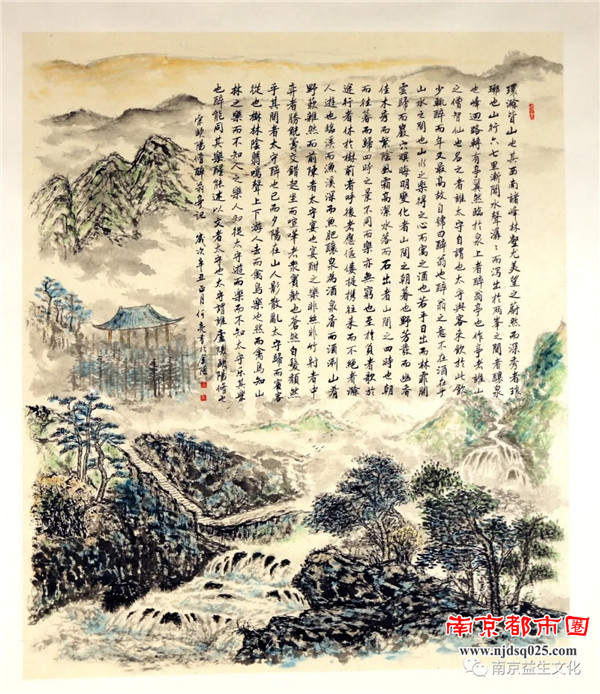 環滁皆山也其西南諸峰林壑尤美望之蔚然而深秀者琅
琊也山行六七里漸聞水聲潺〻而瀉出於兩峯之間者釀泉
也峰迴路轉有亭翼然臨於泉上者醉翁亭也作亭者誰山
之僧智仙也名之者誰太守自謂也太守與客來飲於此飲
少輒醉而年又最高故自號曰醉翁也醉翁之意不在酒在乎
山水之間也山水之樂得之心而寓之酒也若乎日出而林霏開
雲歸而巖穴暝晦明變化者山間之朝暮也野芳發而幽香
佳木秀而繁陰風霜高潔水落而石出者山間之四時也朝
而往暮而歸四時之景不同而樂亦無窮也至於負者歌於
途行者休於樹前者呼後者應傴僂提攜往來而不絕者滁
人遊也臨溪而漁溪深而魚肥釀泉為酒泉香而酒洌山肴
野蔌雜然而前陳者太守宴也宴酣之樂非絲非竹射者中
弈者勝觥籌交錯起坐而喧嘩者眾賓歡也蒼然白髮頹然
乎其間者太守醉也已而夕陽在山人影散亂太守歸而賓客
從也樹林陰翳鳴聲上下遊人去而禽鳥樂也然而禽鳥知山
林之樂而不知人之樂人知從太守遊而樂而不知太守樂其樂
也醉能同其樂醒能述以文者太守也太守謂誰廬陵歐陽脩也
宋歐陽脩醉翁亭記 歲次辛丑正月何亮書於金陵
南京都市圈
www.njdsq025.com
南京益生文化